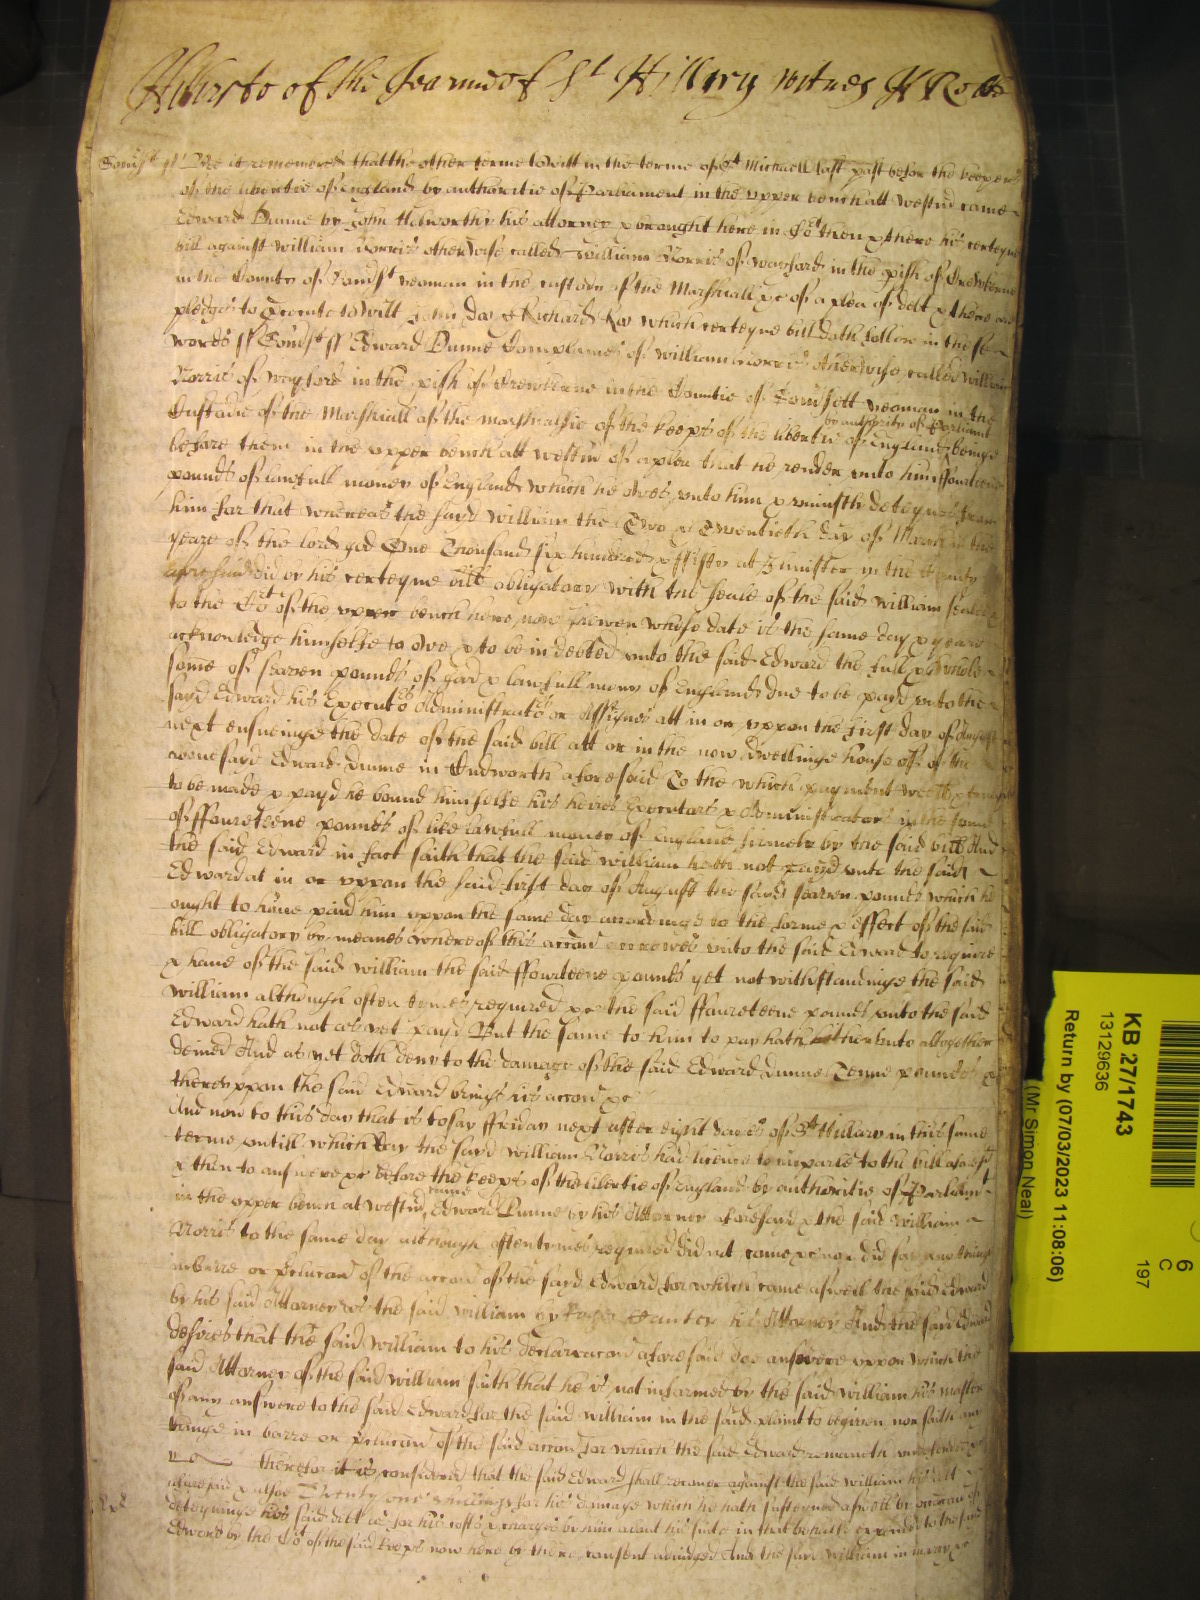 Hitherto of the Tearme of St Hillary witnes H Rolle
Somsᵗ ss Bee it remembred that the other terme to witt in the terme of St Michaell last past before the keepers
of the libertie of England by authoritie of Parliament in the upper bench att Westmr came
Edward Dunne by John his attorney & brought here in Cot then & there his certeyne
bill against William Norris otherwise called William Norris of Wayford in the pish of Crewkerne
in the County of Somst yeoman in the custody of the Marshall &c of a plea of debt & there are
pledges to psecute to witt John Doe & Richard Roe which certeyne bill doth follow in these
words ss Somst ss Edward Dunne Complaines of William Norris otherwise called William
Norris of Wayford in the pish of Crewkerne in the Countie of Somsett yeoman in the
Custodie of the Marshall of the marshalsie of the keeps of the libertie of England by authority of Parliamt beinge
before them in the upper bench att Westmr of a plea that he render unto him ffourteene
pounds of lawfull money of England which he owes unto him & uniustly deteynes from
him for that whereas the sayd William the Two & Twentieth day of March in the
yeare of the lord god One Thousand six hundred & ffiftie at Ilminster in the County
aforesaid did by his certeyne bill obligatory with the seale of the said William sealed
to the Cot of the upper bench here now shewen whose date is the same day & yeare
acknowledge himselfe to owe & to be indebted unto the said Edward the full & whole
some of seaven pounds of good & lawfull mony of England due to be payd unto the
sayd Edward his Executors Administrators or Assignes att in or uppon the first day of August
next ensueinge the date of the said bill att or in the now dwellinge house of the
above sayd Edward Dunne in aforesaid To the which payment well & truly
to be made & payd he bound himselfe his heires Executors & Administrators in the some
of ffoureteene pounds of like lawfull money of England firmely by the said bill And
the said Edward in fact saith that the said William hath not payd unto the said
Edward at in or uppon the said first day of August the said seaven pounds which he
ought to have paid him uppon the same day accordinge to the forme & effect of the said
bill obligatory by meanes whereof his accon accrewes unto the said Edward to require
& have of the said William the said ffourteene pounds yet notwithstandinge the said
William although often tymes required &c the said ffoureteene pounds unto the said
Edward hath not as yet payd But the same to him to pay hath hitherunto altogether
denied And as yet doth deny to the damage of the said Edward Dunne Tenne pounds &
thereuppon the said Edward brings his accon &c
And now to this day that is to say ffriday next after eight dayes of St Hillary in this same
terme untill which day the sayd William Norris had licence to imparle to the bill aforesd
& then to answere &c before the keeps of the libertie of England by authoritie of Parliamt
in the upper bench at Westmr came Edward Dunne by his Attorney aforesayd & the said William
Norris to the same day although oftentymes required did not come &c nor did say any thinge
in barre or pclucon of the accon of the sayd Edward for which came aswell the said Edward
by his said Attorney as the said William by his Attorney And the said Edward
desires that the said William to his declaracon aforesaid doe answere uppon which the
said Attorney of the said William saith that he is not informed by the said William his master
of any answere to the said Edward for the said William in the said plaint to be given nor saith any
thinge in barre or pclucon of the said accon for which the said Edward remaineth undefended
therefor it is considered that the said Edward shall recover against the said William his debt
aforesaid & alsoe Twenty one shillings for his damage which he hath susteyned aswell by occasion of
deteyninge his said debt as for his costs & charges by him about his suite in that behalfe expended to the said
Edward by the Cot of the said keeps now here by there consent adiudged And the said William in mercy &c
KB 27/1743
13129636
Return by (07/03/2023 11:08:06)
(Mr Simon Neal)
6
C
197